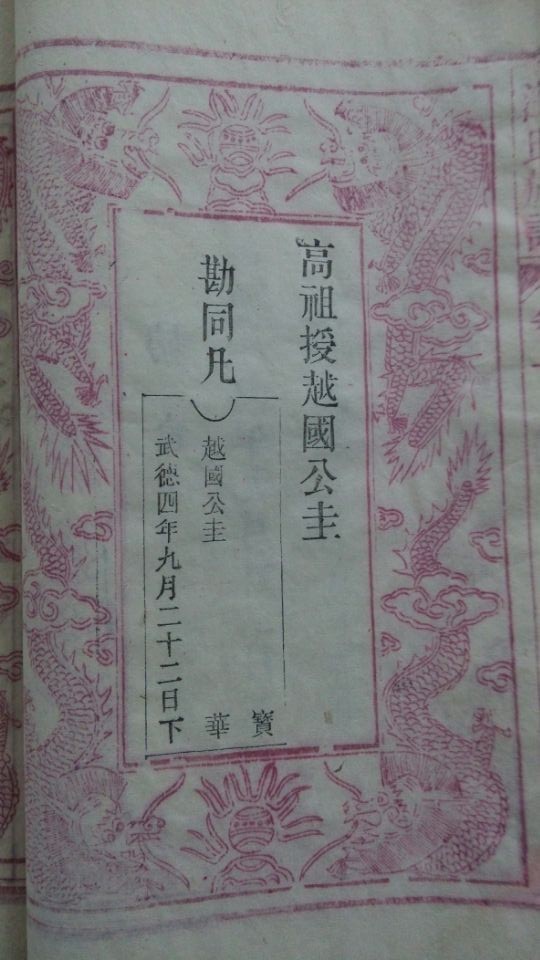 高祖授越國公圭
勘同凡
越國公圭
武德四年九月二十二日下
寶
華